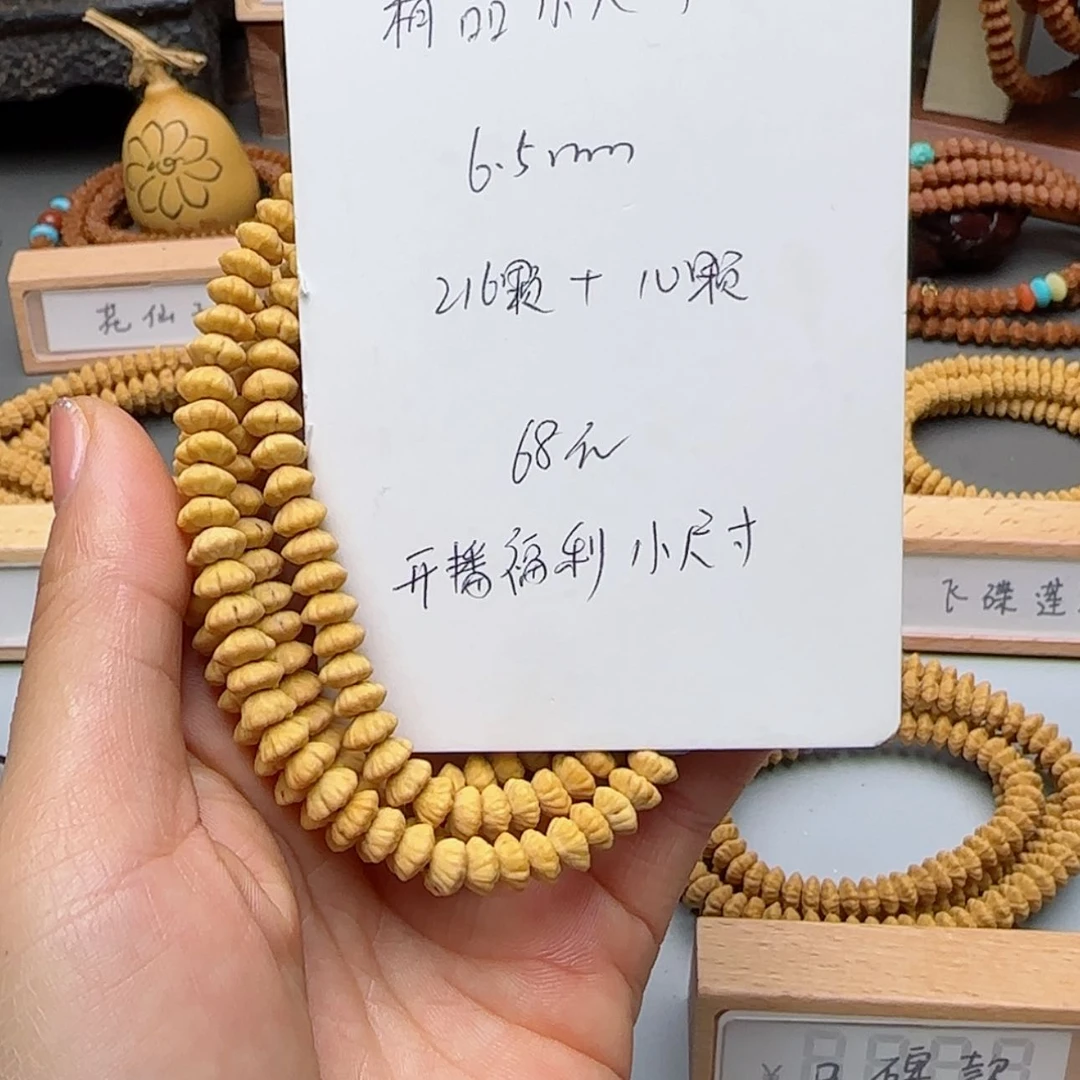 6.5mm
216颗 + 10颗
68元
开播福利 小尺寸
花仙
飞碟莲
¥
款